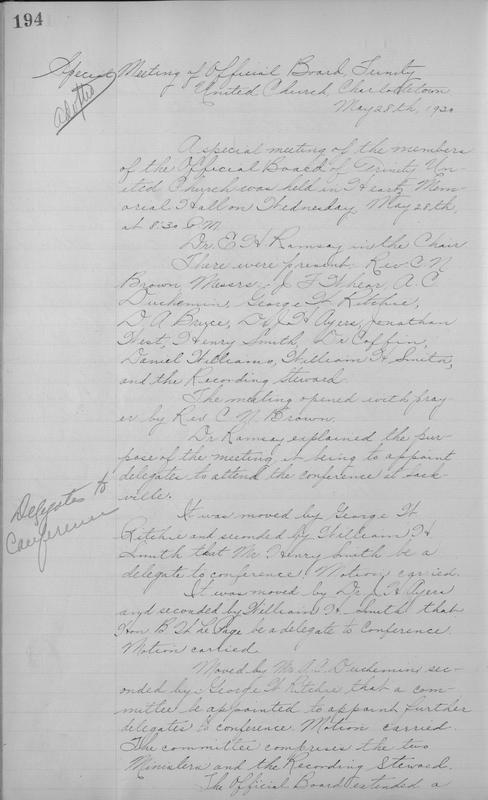 194
Special Meeting of Official Board, Trinity
United Church Charlottetown
May 28th, 1930
adopted
A special meeting of the members
of the Official Board of Trinity Un-
ited Church was held in Heartz Mem-
orial Hall on Wednesday May 28th,
at 8:30 P.M.
Dr. E H Ramsay in the Chair
There were present: Rev C. N.
Brown, Messrs. J F Whear, A. C.
Duchemin, George W. Ritchie,
D. A Bruce, Dr J H Ayers, Jonathan
West, Henry Smith, Dr Coffin,
Daniel Williams, William H Smith,
and the Recording Steward.
The meeting opened with pray-
er by Rev C. N. Brown.
Dr Ramsay explained the pur-
pose of the meeting, it being to appoint
delegates to attend the conference at Sack-
ville.
Delegates to
Conference
It was moved by George W
Ritchie and seconded by William H
Smith that Mr Henry Smith be a
delegate to conference. Motion carried.
It was moved by Dr. J H Ayers
and seconded by William H. Smith that
Hon B. W Le Page be a delegate to Conference.
Motion carried.
Moved by Mr A. C. Duchemin, sec-
onded by George W Ritchie that a com-
mittee be appointed to appoint further
delegates to conference. Motion carried.
The committee comprises the two
Ministers and the Recording Steward.
The Official Board extended a